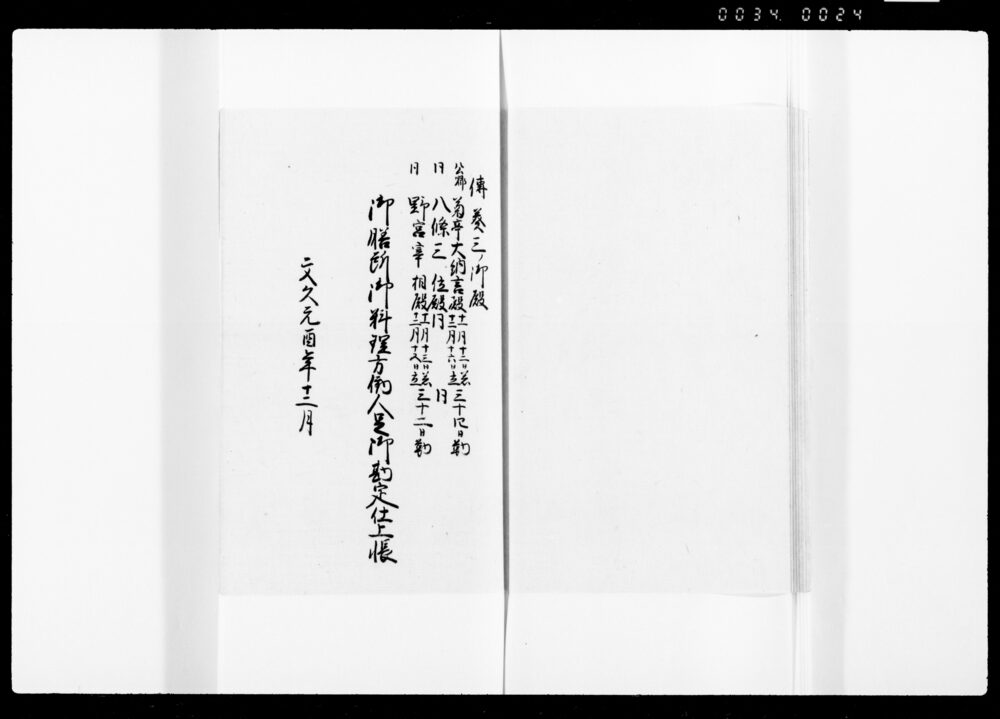 0034 0024
傳奏三御殿
公卿 菊亭大納言殿 十一月十二日着 十二月十六日立 三十四日勤
同 八條三位殿 同 同
同 野宮宰相殿 十一月十三日着 十二月十五日立 三十二日勤
御膳所御料理方働人足御勘定仕上帳
文久元酉年十二月